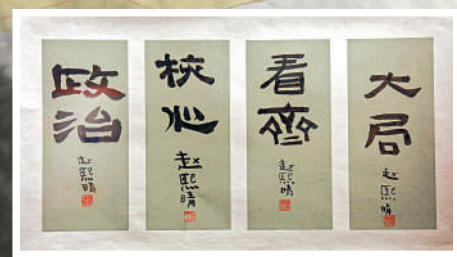 政治
赵熙晴
核心
赵熙晴
看齊
赵熙晴
大局
赵熙晴